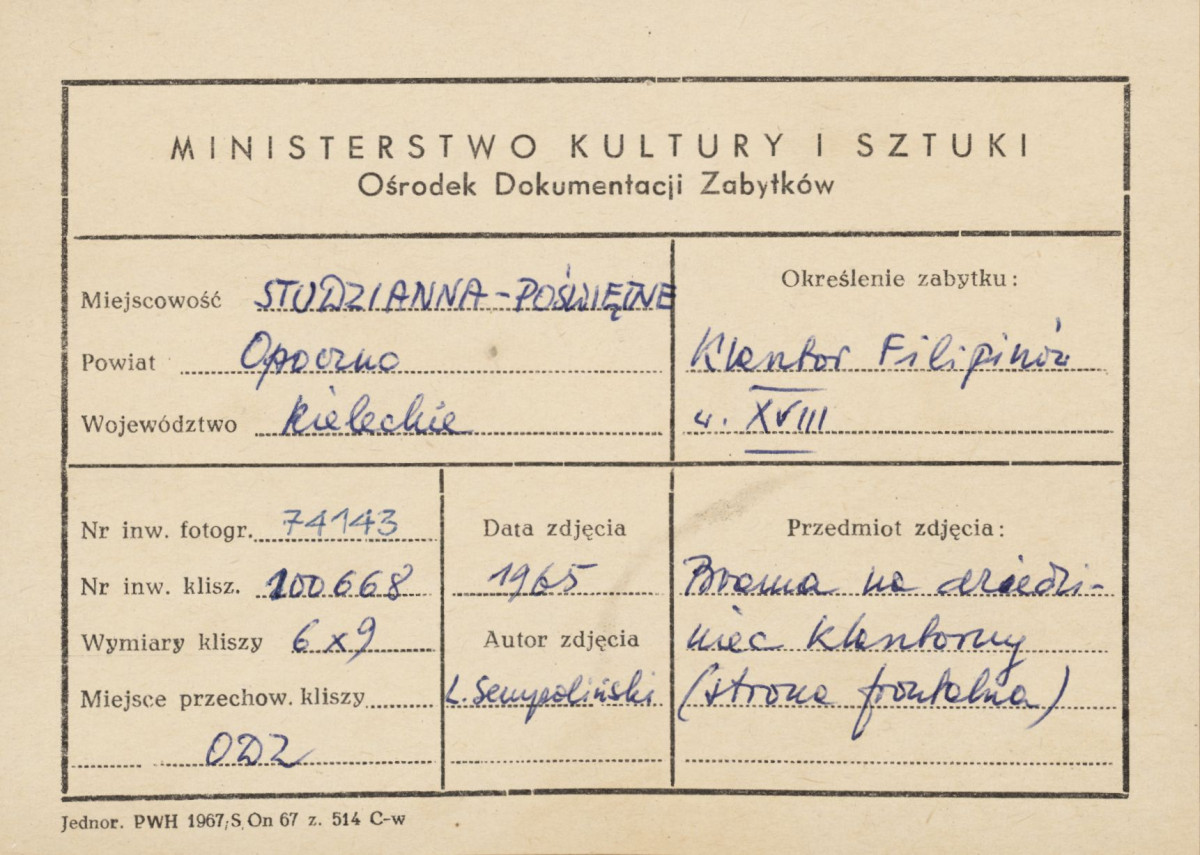 MINISTERSTWO KULTURY I SZTUKI
Ośrodek Dokumentacji Zabytków
Miejscowość STUDZIANNA-POŚWIĘTNE
Powiat Opoczno
Województwo kieleckie
Określenie zabytku:
Klasztor Filipinów
w. XVIII
Nr inw. fotogr. 74143
Nr inw. klisz. 100668
Wymiary kliszy 6x9
Miejsce przechow. kliszy
ODZ
Data zdjęcia
1965
Autor zdjęcia
L. Sempoliński
Przedmiot zdjęcia:
Brama na dziedzi-
niec klasztorny
(strona frontalna)
Jednor. PWH 1967, S. On 67 z. 514 C-w